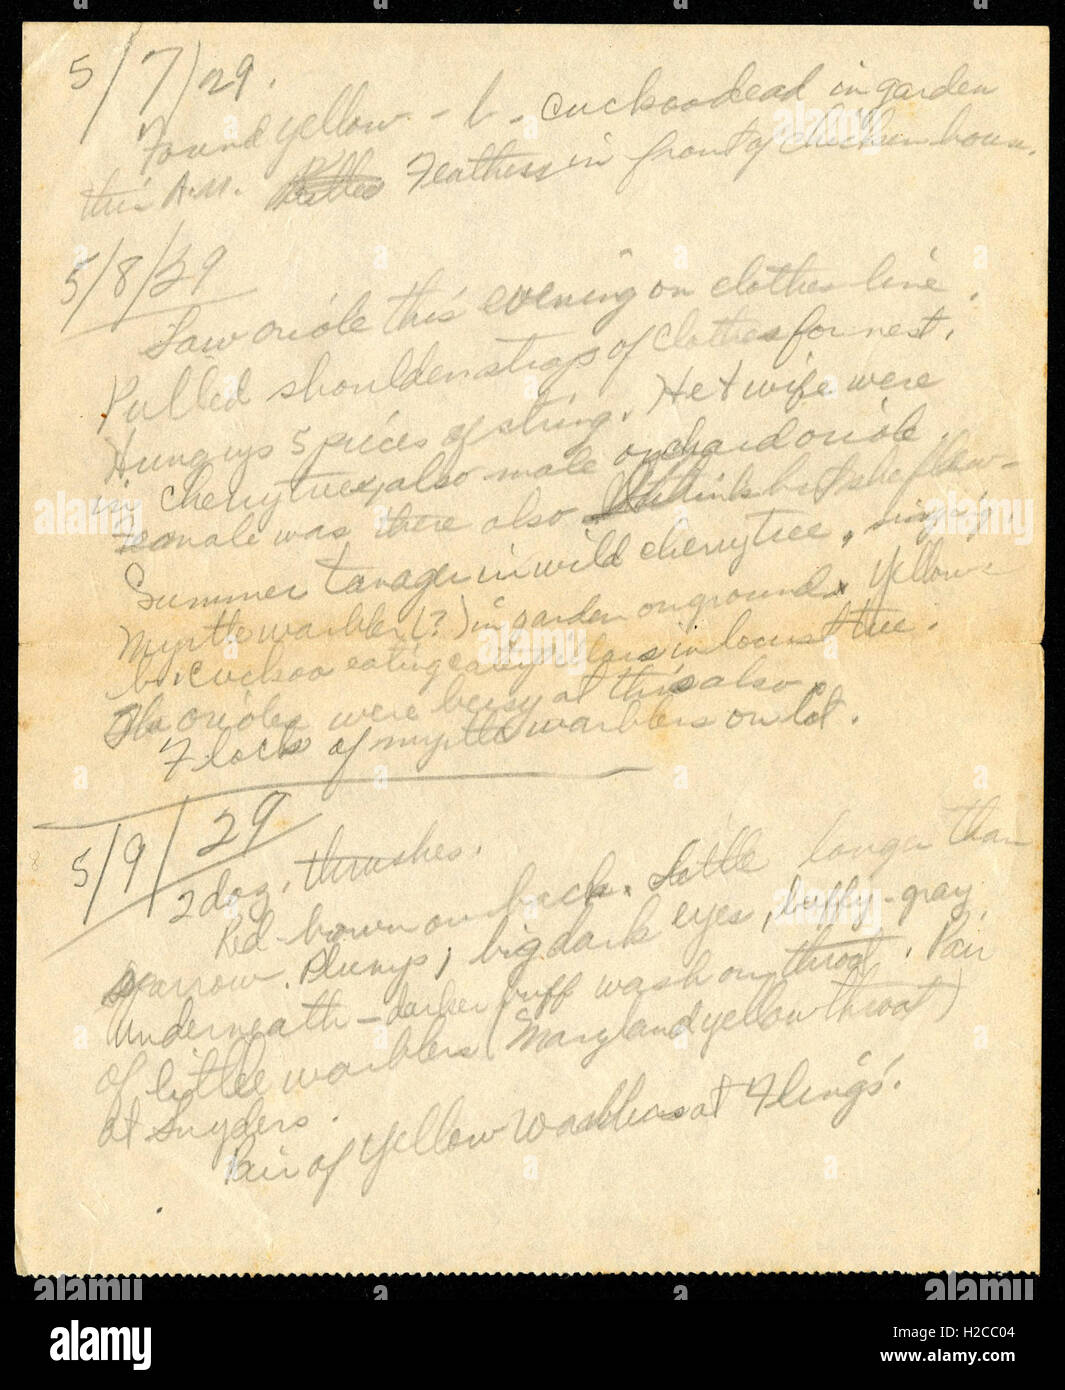 5/7/29.
Found yellow-b. cuckoo dead in garden
this A.M. Feathers in front of chicken house.
5/8/29
Saw oriole this evening on clothes line.
Pulled shoulder straps of clothes for nest.
Hung up 5 pieces of string. He & wife were
in cherry tree, also male orchard oriole.
Female was there also I think but she flew
Summer tanager in wild cherry tree, singing.
Myrtle warbler (?) in garden on ground. Yellow-
b. cuckoo eating caterpillars in locust tree.
The orioles were busy at this also.
Flock of myrtle warblers on lot.
5/9/29
2 doz. thrushes.
Red-brown on back. Little longer than
sparrow. Plump, big dark eyes, buffy-gray
underneath - darker buff wash on throat. Pair
of little warblers (Maryland yellow throat)
at Snyders.
Pair of Yellow Warblers at Fling's.
alamy stock photo
H2CC04
www.alamy.com